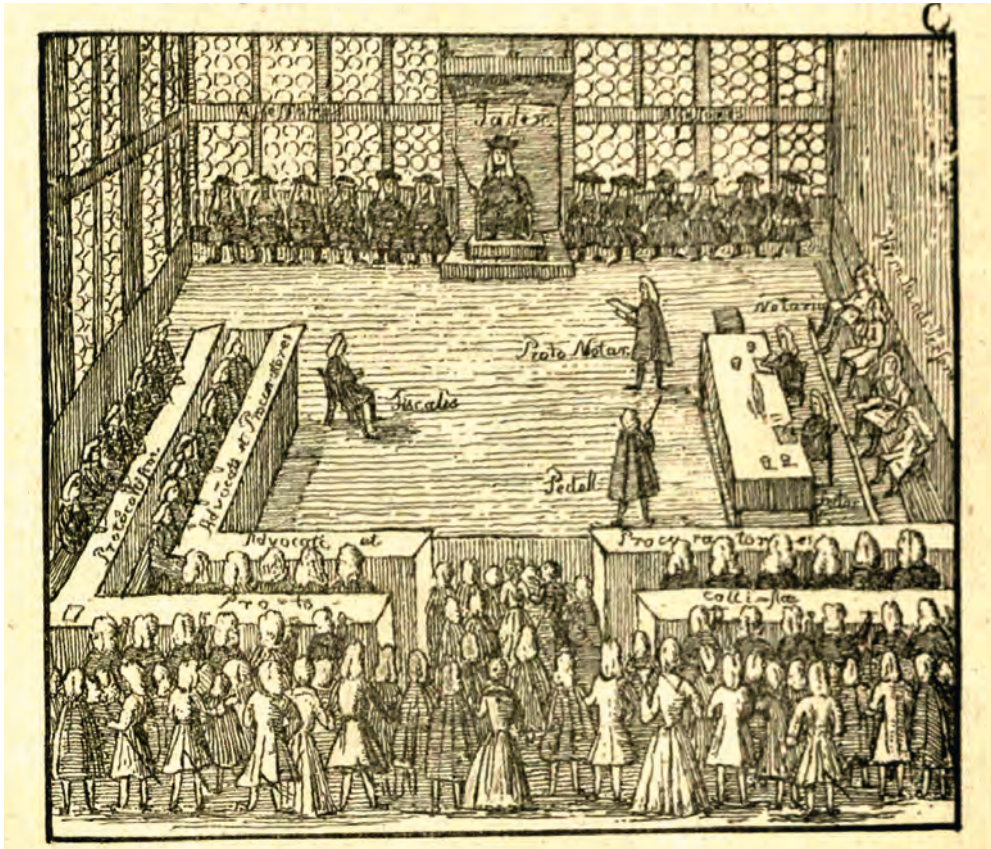 C.
Assessores
Judex
Assessores
Notarii
Proto Notar.
Fiscalis
Protocolistæ
Advocati et Procuratores
Pedell
Advocati et
Procuratores
Proto
collistæ